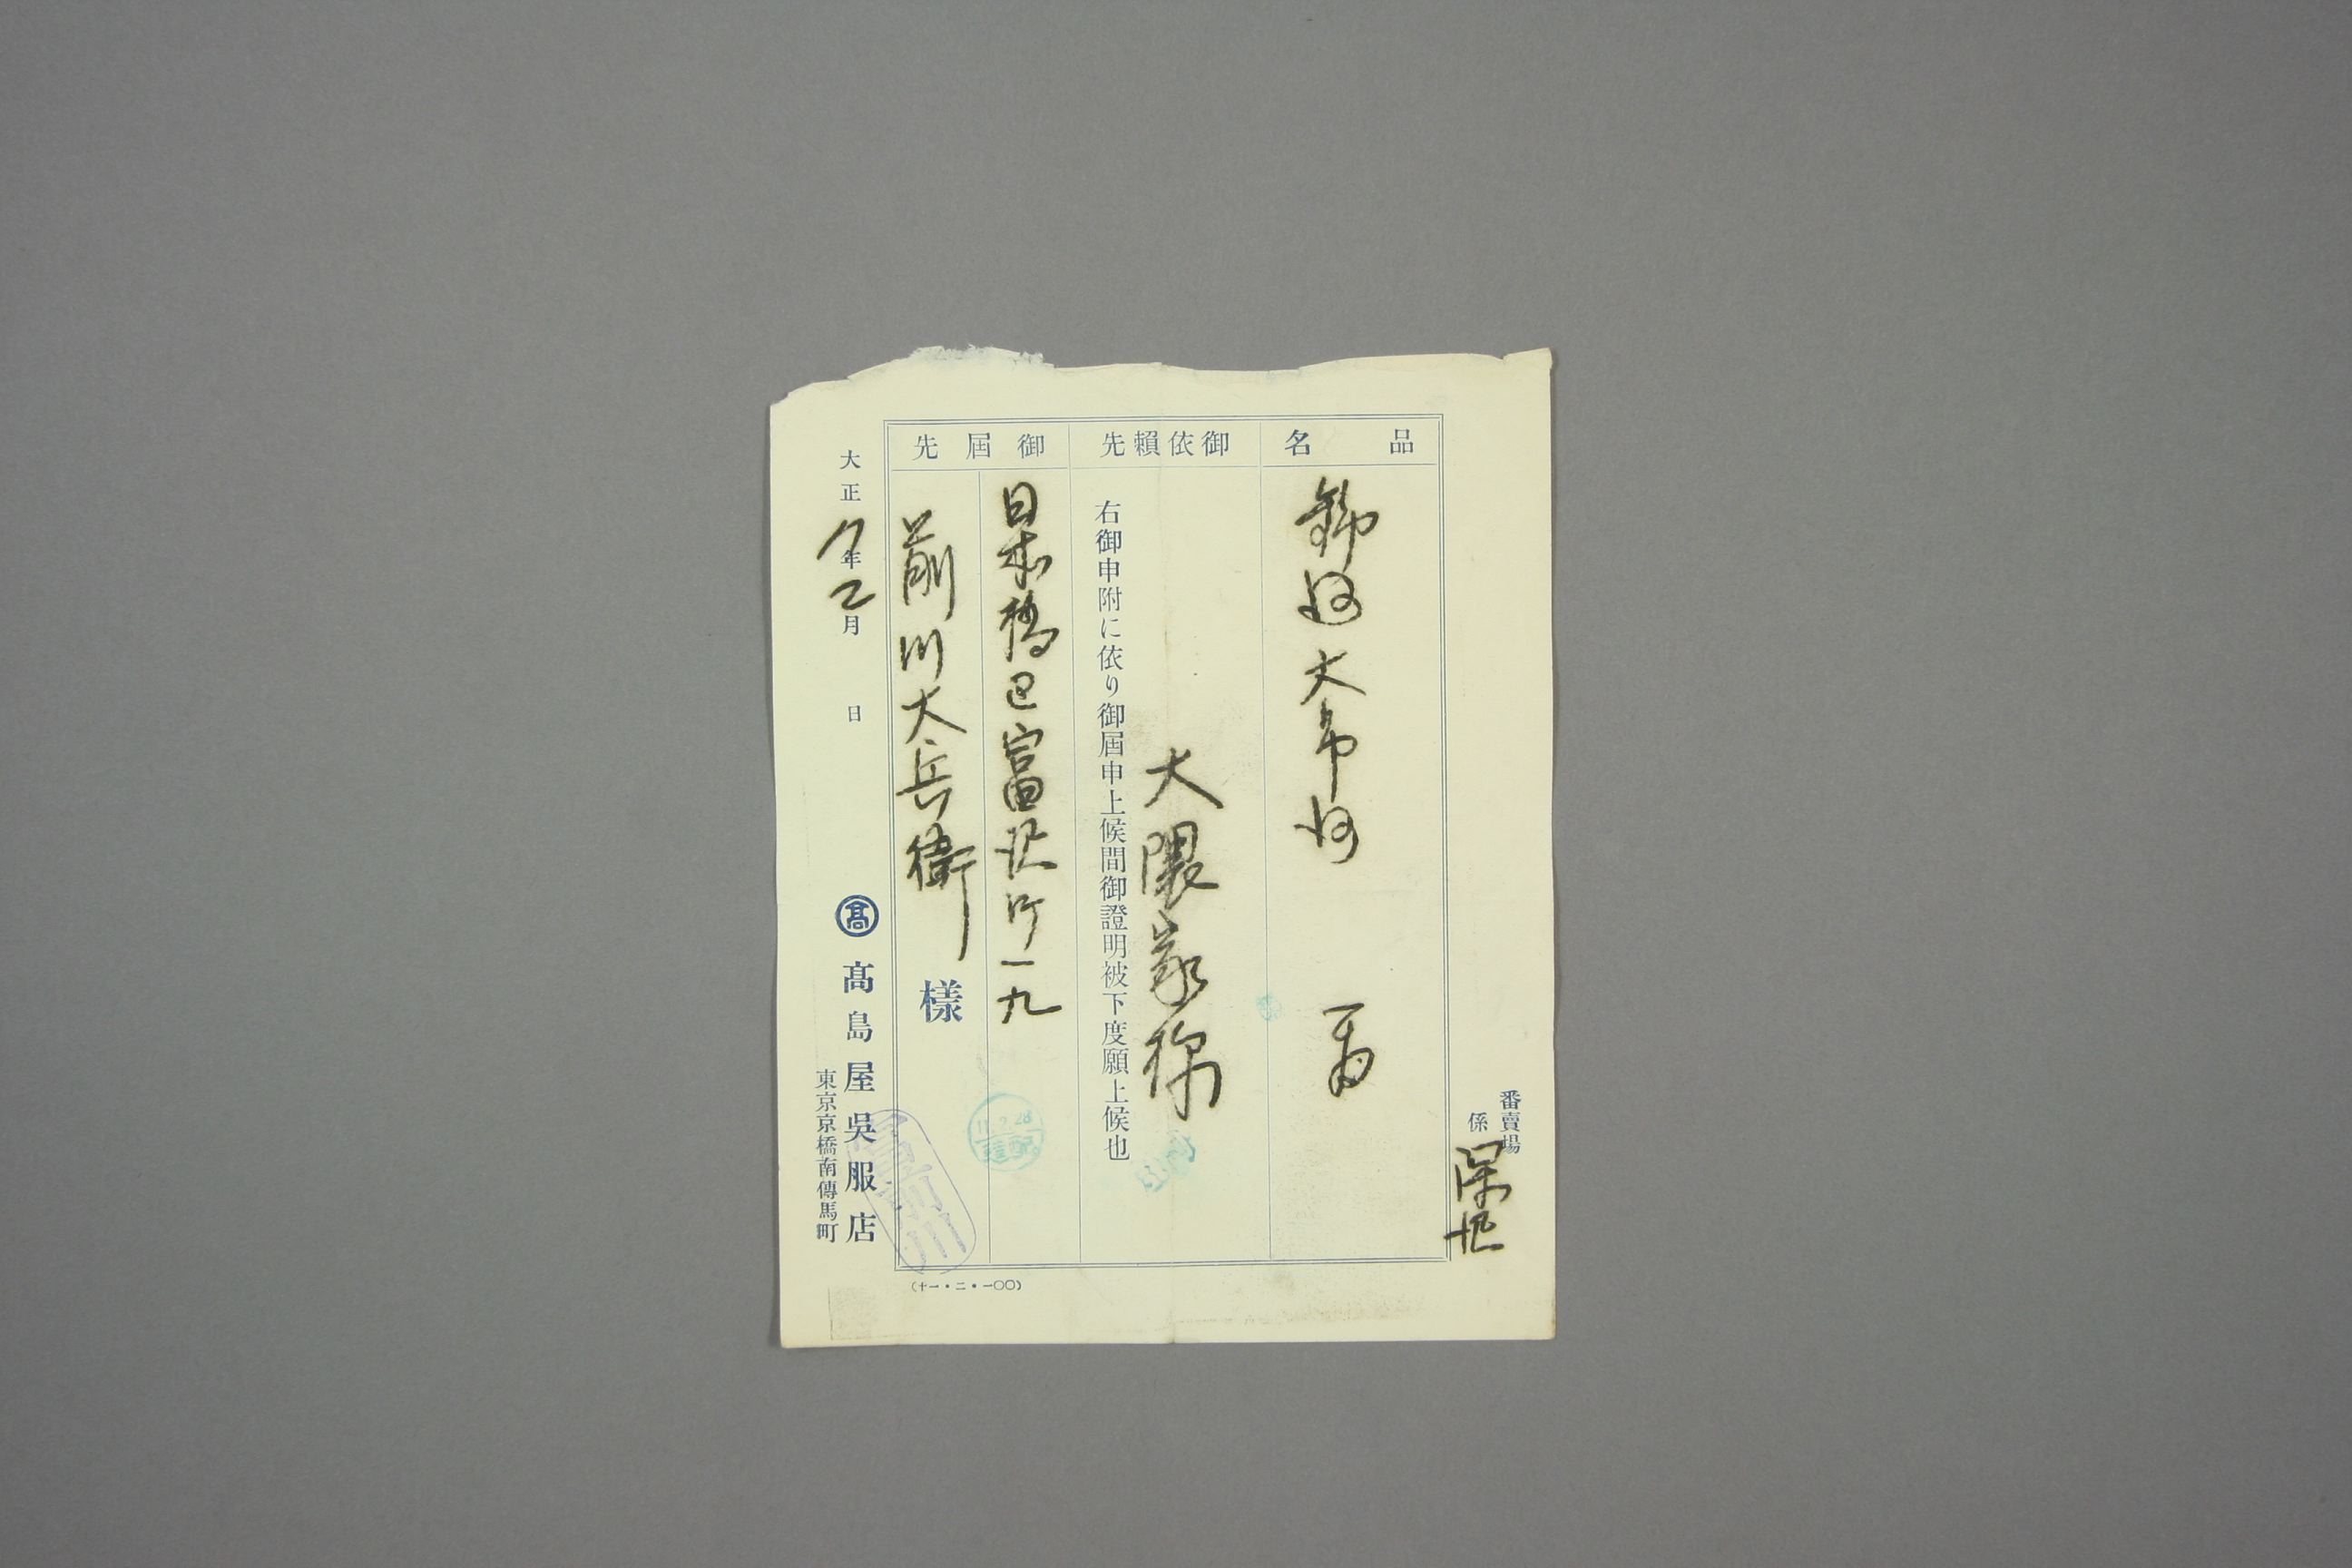 番賣場
係
品名
御依賴先
大隈家様
右御申附に依り御届申上候間御證明被下度願上候也
御屆先
日本橋区富沢町一九
前川太兵衛
様
大正 年 2月 日
髙
髙島屋吳服店
東京京橋南傳馬町
(十一・二・一〇〇)